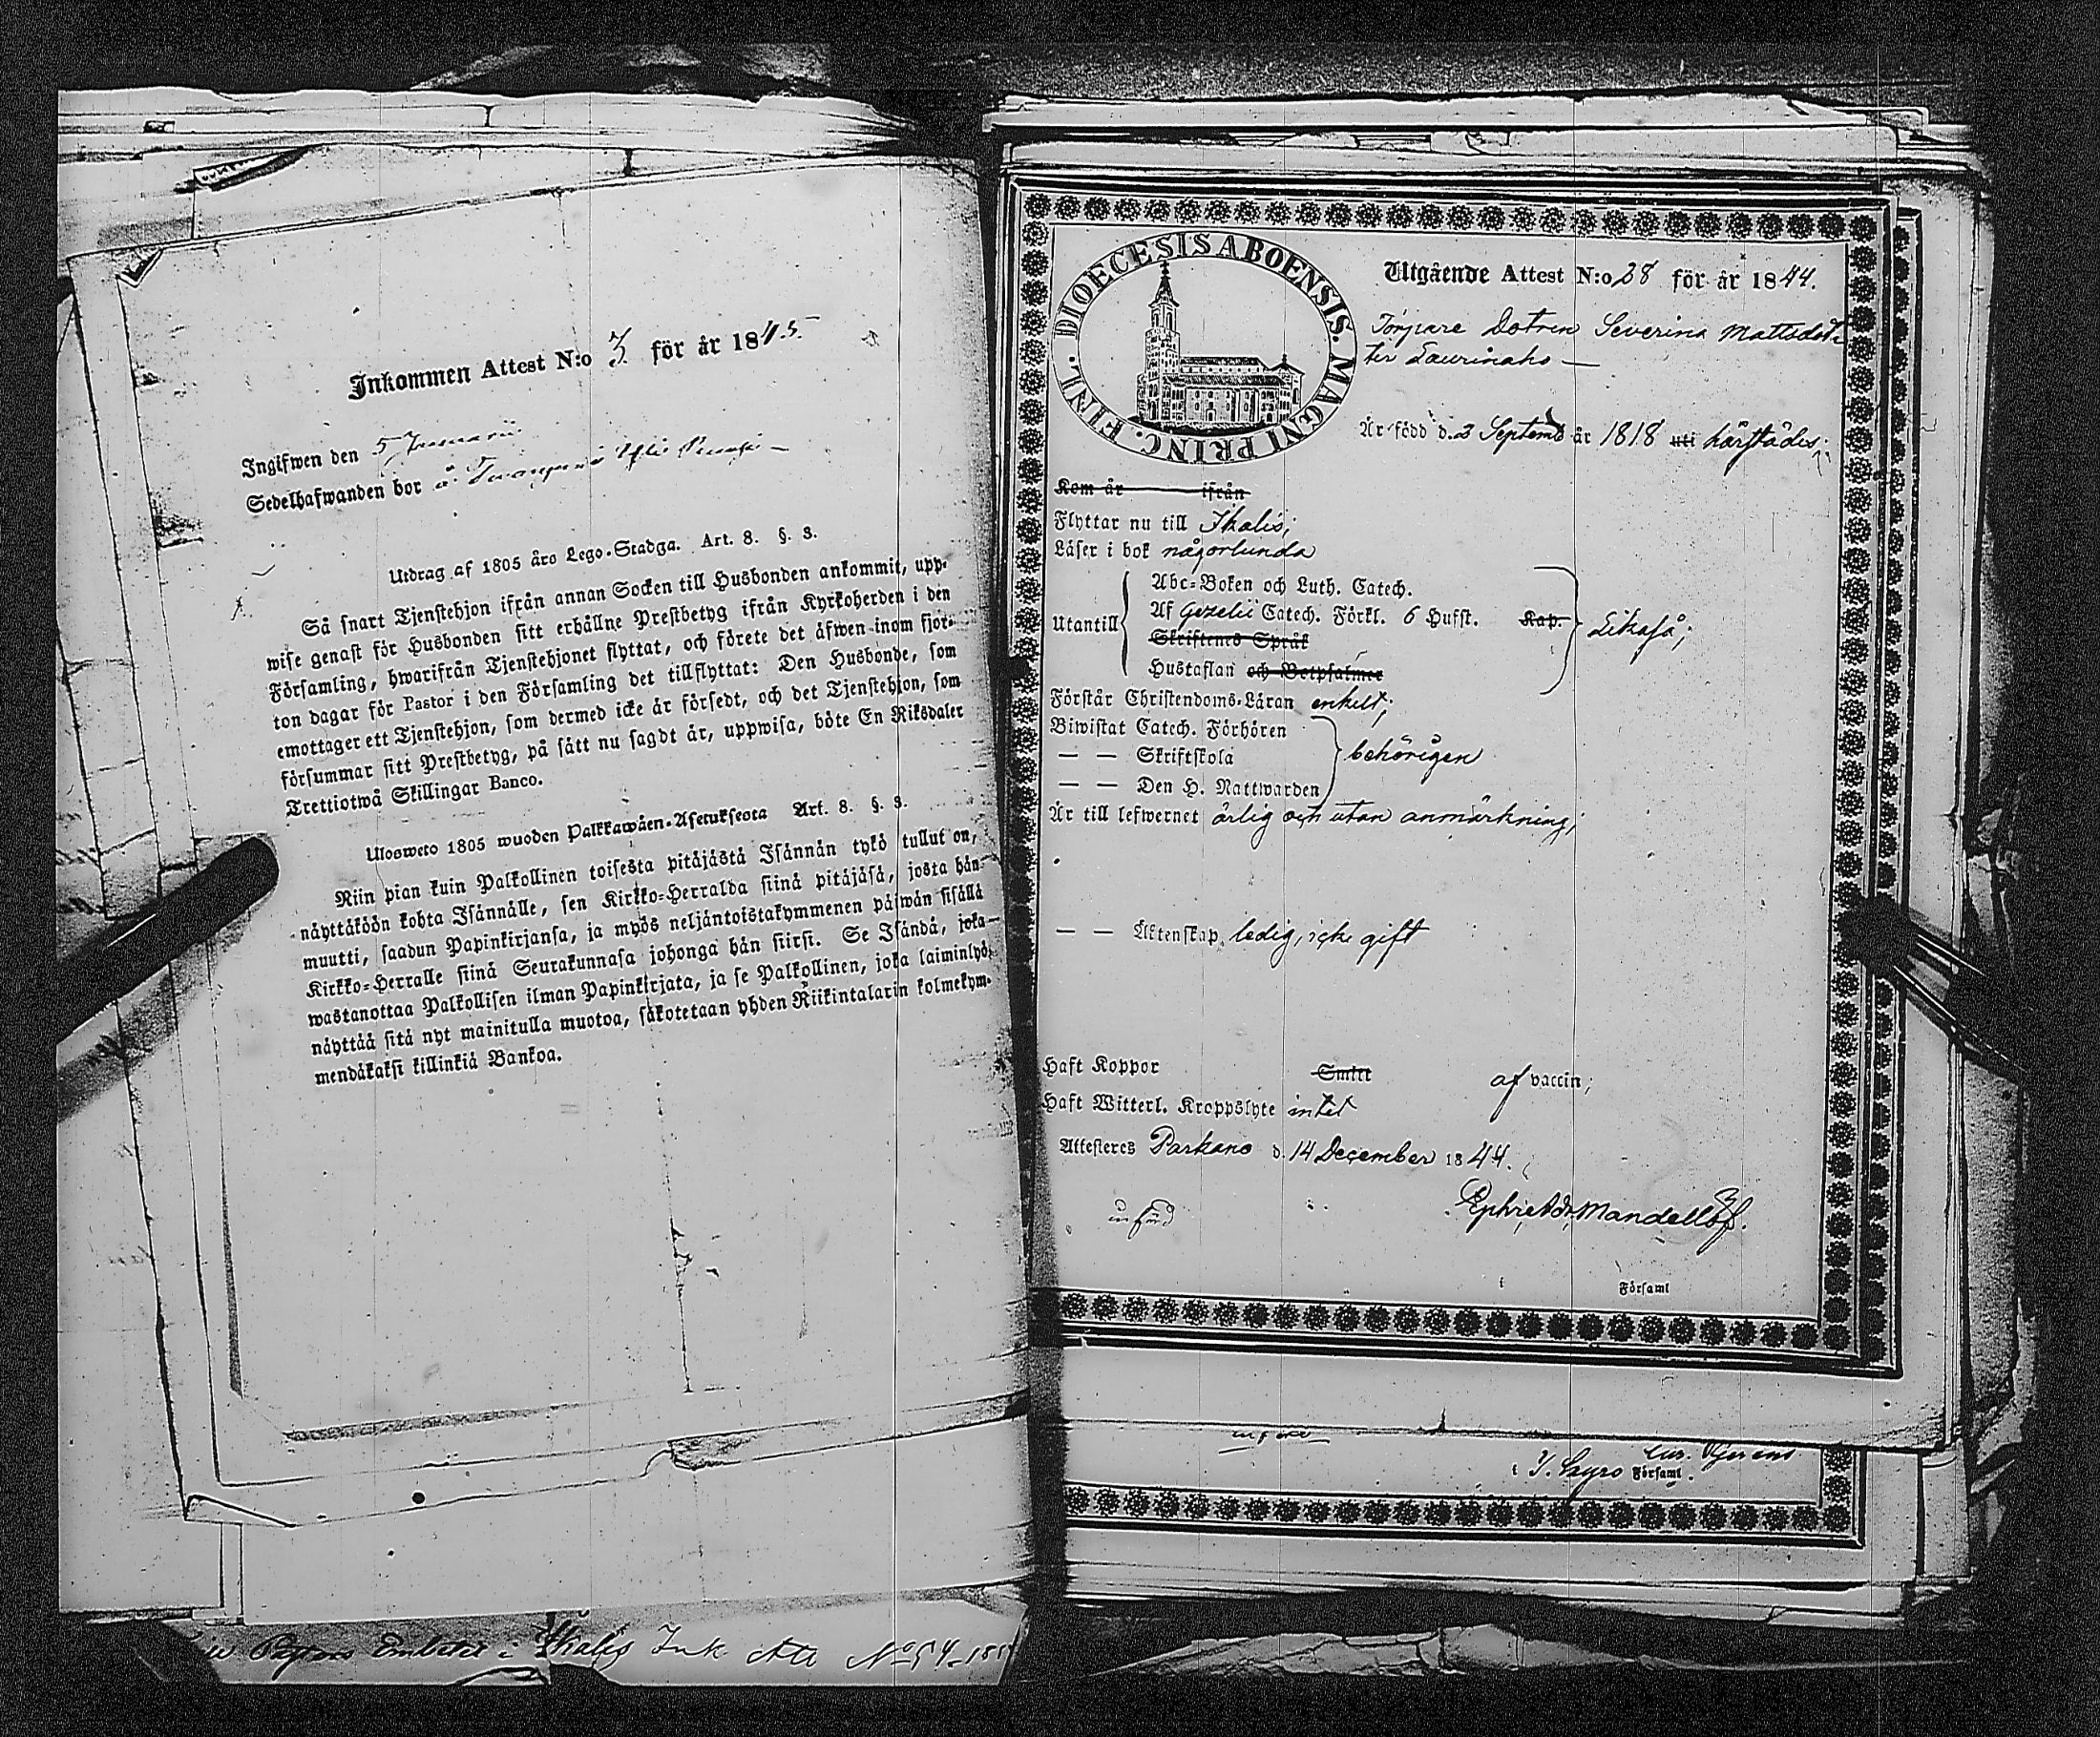 Inkommen Attest N:o 3. för år 1845.
Ingifwen den 5 Januarii
Sedelhafwanden bor å
Utdrag af 1805 åro Lego-Stadga. Art. 8. §. 3.
Så snart Tjenstehjon ifrån annan Socken till Husbonden ankommit, upp-
wise genast för Husbonden sitt erhållne Prestbetyg ifrån Kyrkoherden i den
Församling, hwarifrån Tjenstehjonet flyttat, och förete det äfwen inom fjor-
ton dagar för Pastor i den Församling det tillflyttat: Den Husbonde, som
emottager ett Tjenstehjon, som dermed icke är försedt, och det Tjenstehjon, som
försummar sitt Prestbetyg, på sätt nu sagdt är, uppwisa, böte En Riksdaler
Trettiotwå Skillingar Banco.
Ulosweto 1805 wuoden Palkkawäen-Asetuksesta Art. 8. §. 3.
Niin pian kuin Palkollinen toisesta pitäjästä Isännän tykö tullut on,
näyttäköön kohta Isännälle, sen Kirkko-Herralda siinä pitäjäsä, josta hän
muutti, saadun Papinkirjansa, ja myös neljäntoistakymmenen päiwän sisällä
Kirkko-Herralle siinä Seurakunnasa johonga hän siirsi. Se Isändä, joka
wastanottaa Palkollisen ilman Papinkirjata, ja se Palkollinen, joka laiminlyö
näyttää sitä nyt mainitulla muotoa, sakotetaan yhden Riikintalarin kolmekym-
mendäkaksi killinkiä Bankoa.
Pastors Embetet i Ikalis Ink Atte No 54
DIOECESIS ABOENSIS. MAGNI PRINC. FINL.
Utgående Attest N:o 38 för år 1844.
Torpare Dotren Severina Mattsdot
ter Laurinaho —
Är född d. 3 Septemb år 1818 uti härstädes;
Kom år ifrån
Flyttar nu till Ikalis;
Läser i bok någorlunda
Utantill
Abc-Boken och Luth. Catech.
Af Gezelii Catech. Förkl. 6 Hufst. Kap.
Skriftenes Språk
Hustaflan och Botpsalmer
Likaså;
Förstår Christendoms-Läran enkelt;
Biwistat Catech. Förhören
— — Skriftskola
— — Den H. Nattwarden
behörigen
Är till lefwernet ärlig och utan anmärkning;
— — Äktenskap, ledig, icke gift
Haft Koppor Smitt af vaccin;
Haft Witterl. Kroppslyte intet
Attesteres Parkano d. 14 December 1844.
införd
Mandellöf.
i Församl
i I. Kyro Församl.